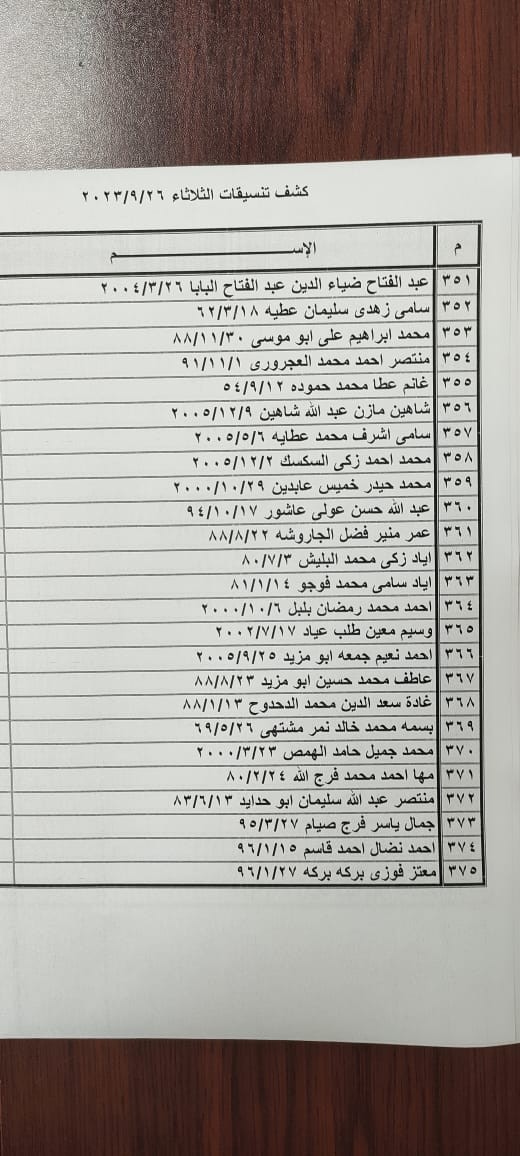 كشف تنسيقات الثلاثاء ٢٠٢٣/٩/٢٦
م الإســـــــــــــــــــــم
٣٥١ عبد الفتاح ضياء الدين عبد الفتاح البابا ٢٠٠٤/٣/٢٦
٣٥٢ سامى زهدى سليمان عطيه ٦٢/٣/١٨
٣٥٣ محمد ابراهيم على ابو موسى ٨٨/١١/٣٠
٣٥٤ منتصر احمد محمد العجرورى ٩١/١١/١
٣٥٥ غانم عطا محمد حموده ٥٤/٩/١٢
٣٥٦ شاهين مازن عبد الله شاهين ٢٠٠٥/١٢/٩
٣٥٧ سامى اشرف محمد عطايه ٢٠٠٥/٥/٦
٣٥٨ محمد احمد زكى السكسك ٢٠٠٥/١٢/٢
٣٥٩ محمد حيدر خميس عابدين ٢٠٠٠/١٠/٢٩
٣٦٠ عبد الله حسن عولى عاشور ٩٤/١٠/١٧
٣٦١ عمر منير فضل الجاروشه ٨٨/٨/٢٢
٣٦٢ اياد زكى محمد البليش ٨٠/٧/٣
٣٦٣ اياد سامى محمد فوجو ٨١/١/١٤
٣٦٤ احمد محمد رمضان بلبل ٢٠٠٠/١٠/٦
٣٦٥ وسيم معين طلب عياد ٢٠٠٢/٧/١٧
٣٦٦ احمد نعيم جمعه ابو مزيد ٢٠٠٥/٩/٢٥
٣٦٧ عاطف محمد حسين ابو مزيد ٨٨/٨/٢٣
٣٦٨ غادة سعد الدين محمد الدحدوح ٨٨/١/١٣
٣٦٩ بسمه محمد خالد نمر مشتهى ٦٩/٥/٢٦
٣٧٠ محمد جميل حامد الهمص ٢٠٠٠/٣/٢٣
٣٧١ مها احمد محمد فرج الله ٨٠/٢/٢٤
٣٧٢ منتصر عبد الله سليمان ابو حدايد ٨٣/٦/١٣
٣٧٣ جمال ياسر فرج صيام ٩٥/٣/٢٧
٣٧٤ احمد نضال احمد قاسم ٩٦/١/١٥
٣٧٥ معتز فوزى بركه بركه ٩٦/١/٢٧